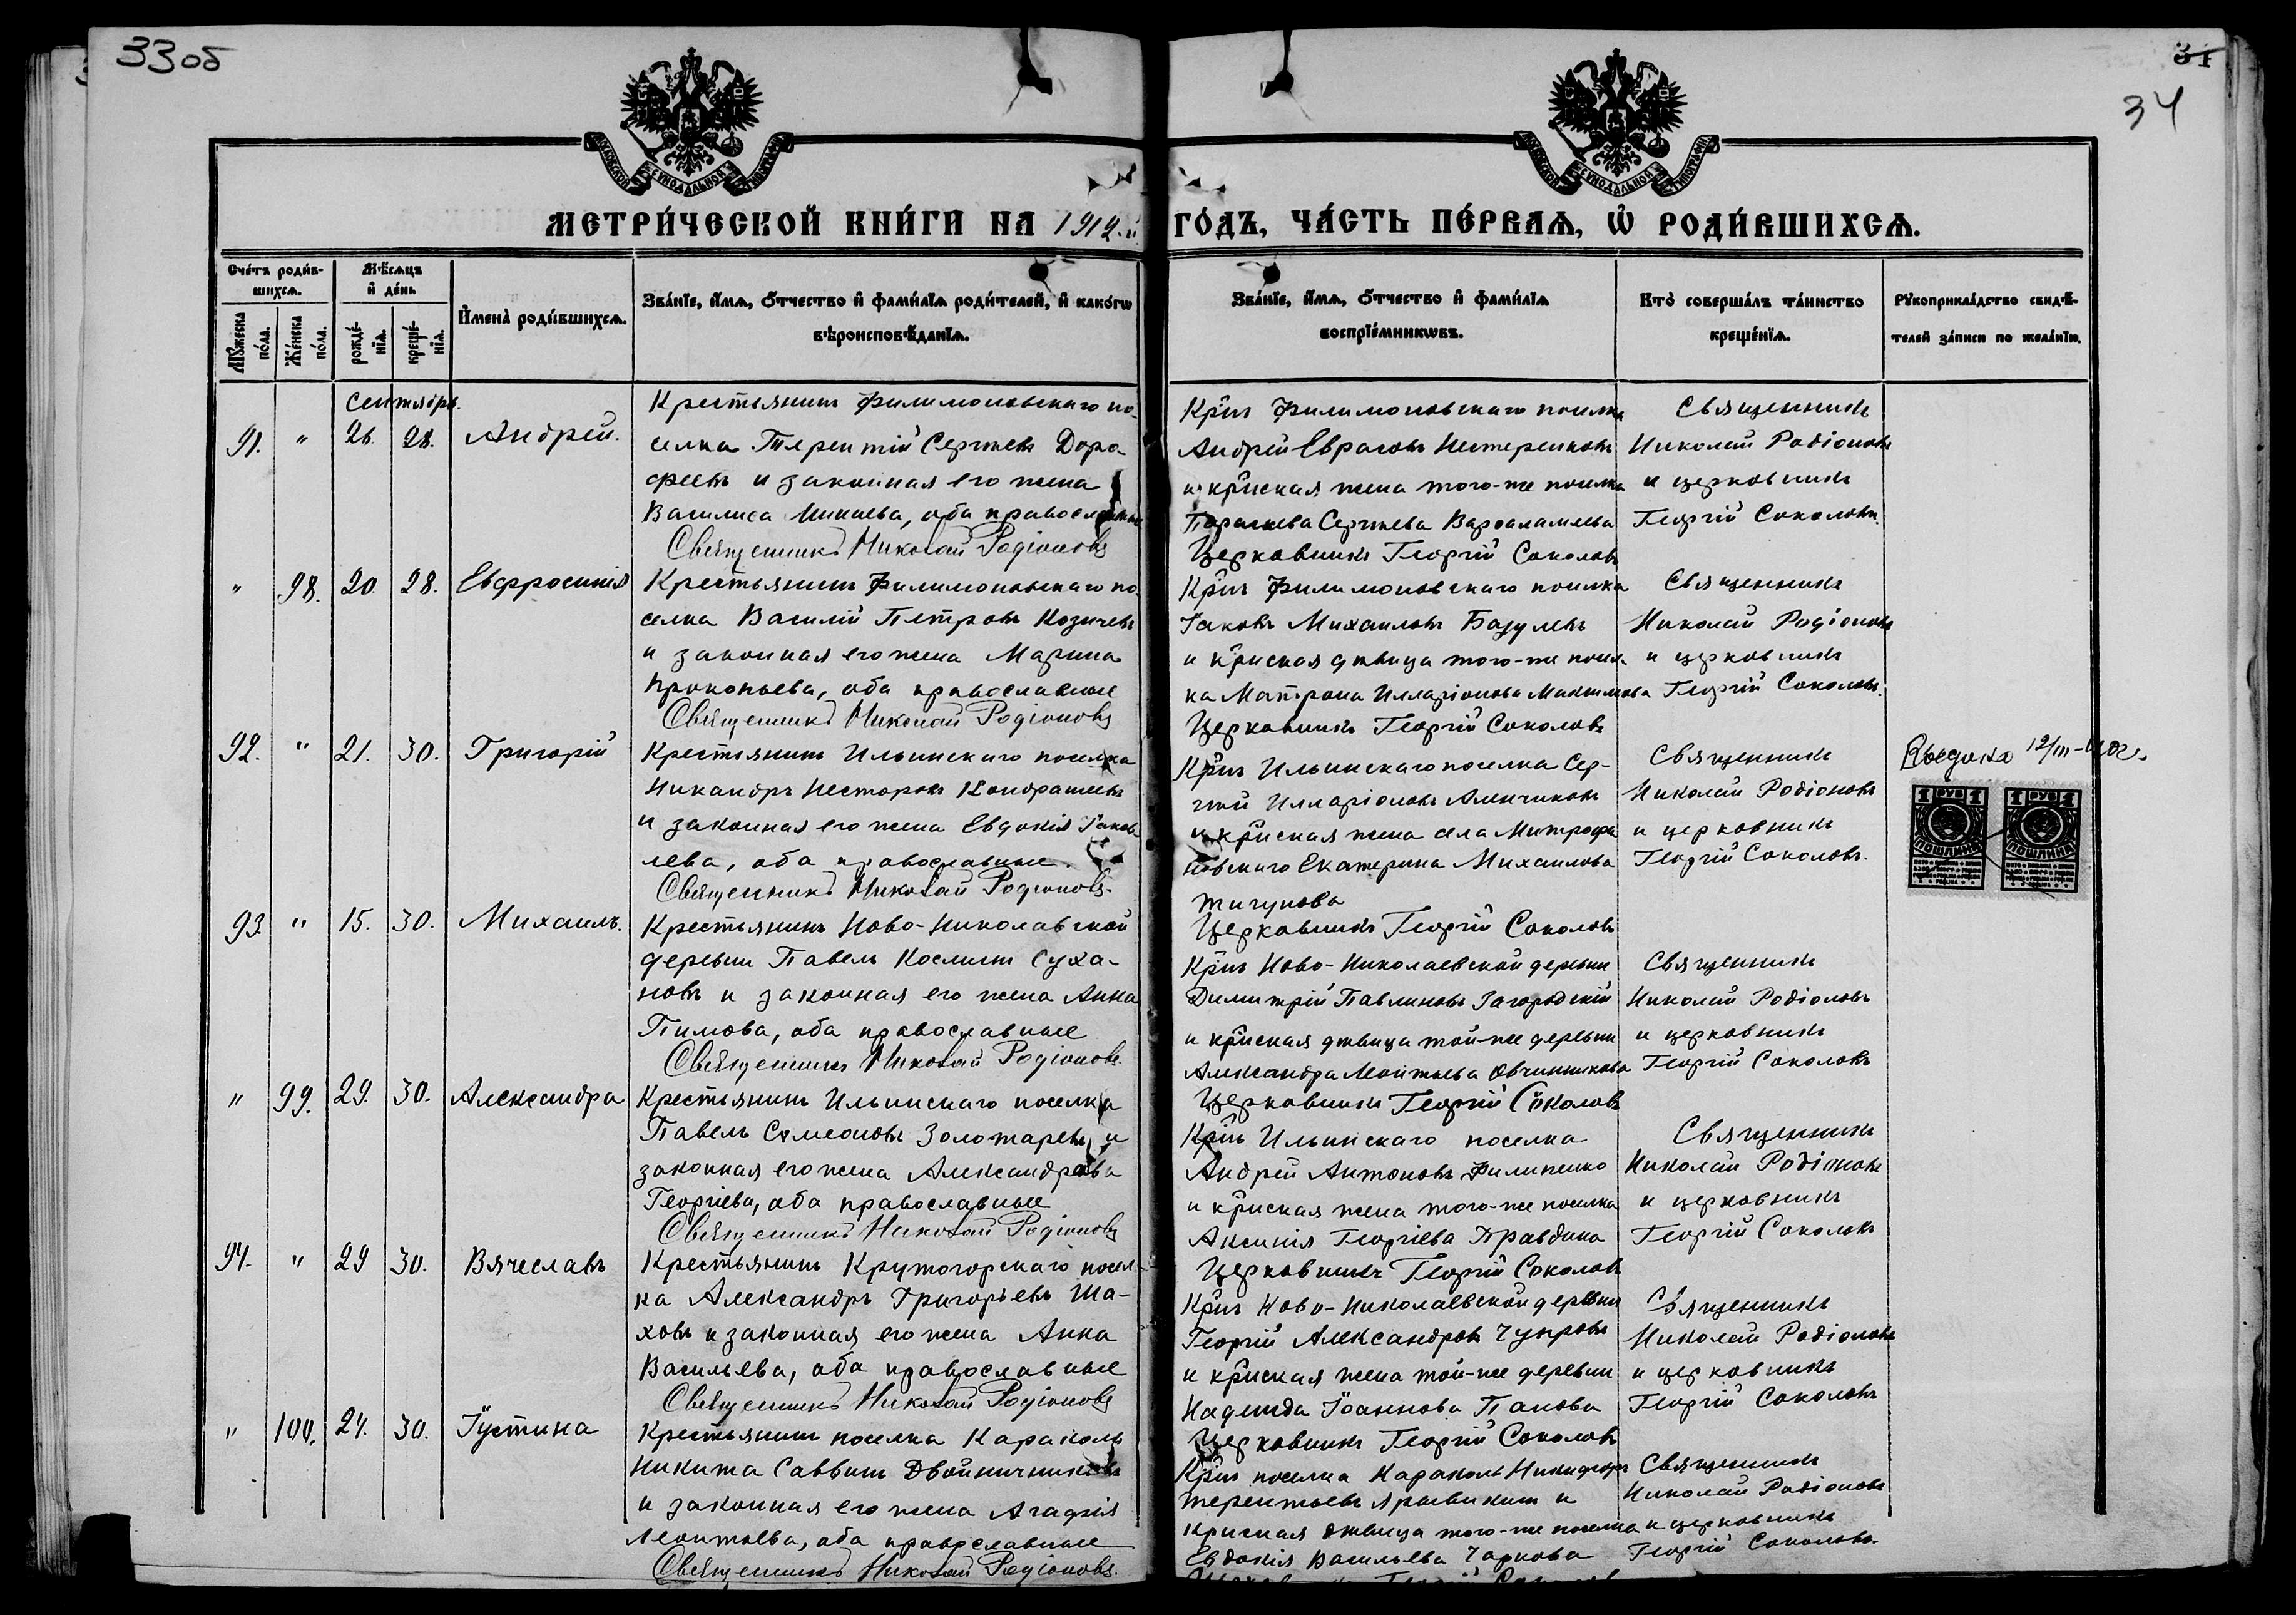 33 об
34
34
МОСКОВСКОЙ СѴНОДАЛЬНОЙ ТИПОГРАФІИ
МОСКОВСКОЙ СѴНОДАЛЬНОЙ ТИПОГРАФІИ
МЕТРИ́ЧЕСКОЙ КНИ́ГИ НА 1912-й
ГО́ДЪ, ЧА́СТЬ ПЕ́РВАѦ, Ѡ҆ РОДИ́ВШИХСѦ.
Сче́тъ роди́в-
шихсѧ.
Мꙋ́жеска по́ла.
Же́нска по́ла.
Мѣ́сѧцъ
и҆ де́нь
рожде́-
нїѧ.
креще́-
нїѧ.
И҆мена̀ роди́вшихсѧ.
Зва́нїе, и҆́мѧ, ѻ҆́тчество и҆ фами́лїѧ роди́телей, и҆ како́гѡ
вѣроисповѣ́данїѧ.
Зва́нїе, и҆́мѧ, ѻ҆́тчество и҆ фами́лїѧ
воспрїе́мникѡвъ.
Кто̀ соверша́лъ та́инство
креще́нїѧ.
Рꙋкоприкла́дство свидѣ́-
телей за́писи по жела́нїю.
Сентябрь.
91. " 26. 28. Андрей.
Крестьянинъ Филимоновскаго по-
селка Терентій Сергѣевъ Доро
феевъ и законная его жена
Василиса Минаева, оба православные
Священникъ Николай Родіоновъ
Кр̃нъ Филимоновскаго поселка
Андрей Еврасовъ Нестеренковъ
и кр̃нская жена того-же поселка
Параскева Сергѣева Варѳаламѣева
Церковникъ Георгій Соколовъ
Священникъ
Николай Родіоновъ
и церковникъ
Георгій Соколовъ.
" 98. 20. 28. Евфросинія
Крестьянинъ Филимоновскаго по-
селка Василій Петровъ Козичевъ
и законная его жена Марина
Прокопьева, оба православные
Священникъ Николай Родіоновъ
Кр̃нъ Филимоновскаго поселка
Іаковъ Михаиловъ Базулевъ
и кр̃нская дѣвица того-же посел-
ка Матрона Илларіонова Максимова
Церковникъ Георгій Соколовъ
Священникъ
Николай Родіоновъ
и церковникъ
Георгій Соколовъ.
92. " 21. 30. Григорій
Крестьянинъ Ильинскаго поселка
Никандръ Несторовъ Кондрашевъ
и законная его жена Евдокія Іаков-
лева, оба православные.
Священникъ Николай Родіоновъ.
Кр̃нъ Ильинскаго поселка Сер-
гѣй Илларіоновъ Аленчиковъ
и кр̃нская жена села Митрофа
новскаго Екатерина Михаилова
Тигунова
Церковникъ Георгій Соколовъ
Священникъ
Николай Родіоновъ
и церковникъ
Георгій Соколовъ.
12/III
1 РУБ 1
ПОШЛИНА
1 РУБ 1
ПОШЛИНА
93. " 15. 30. Михаилъ.
Крестьянинъ Ново-Николавской
деревни Павелъ Косминъ Суха-
новъ и законная его жена Анна
Пимова, оба православные
Священникъ Николай Родіоновъ.
Кр̃нъ Ново-Николаевской деревни
Димитрій Павлиновъ Загородскій
и кр̃нская дѣвица той-же деревни
Александра Леонтьева Овчинникова
Церковникъ Георгій Соколовъ
Священникъ
Николай Родіоновъ
и церковникъ
Георгій Соколовъ
" 99. 29. 30. Александра
Крестьянинъ Ильинскаго поселка
Павелъ Симеоновъ Золотаревъ и
законная его жена Александрова
Георгіева, оба православные
Священникъ Николай Родіоновъ
Кр̃нъ Ильинскаго поселка
Андрей Антоновъ Филипенко
и кр̃нская жена того-же поселка
Аксинія Георгіева Правдина
Церковникъ Георгій Соколовъ
Священникъ
Николай Родіоновъ
и церковникъ
Георгій Соколовъ
94. " 29 30. Вячеславъ
Крестьянинъ Крутогорскаго посел-
ка Александръ Григорьевъ Ша-
ховъ и законная его жена Анна
Васильева, оба православные
Священникъ Николай Родіоновъ
Кр̃нъ Ново-Николаевской деревни
Георгій Александровъ Чупровъ
и кр̃нская жена той-же деревни
Надежда Іоаннова Панова
Церковникъ Георгій Соколовъ
Священникъ
Николай Родіоновъ
и церковникъ
Георгій Соколовъ
" 100. 24. 30. Іустина
Крестьянинъ поселка Караколь
Никита Саввинъ Двойничниковъ
и законная его жена Агафія
Леонтьева, оба православные
Священникъ Николай Родіоновъ.
Кр̃нъ поселка Караколь Никифоръ
Терентьевъ и
крнская дѣвица того-же поселка
Евдокія Васильева Чаркова
Священникъ
Николай Родіоновъ
и церковникъ
Георгій Соколовъ.